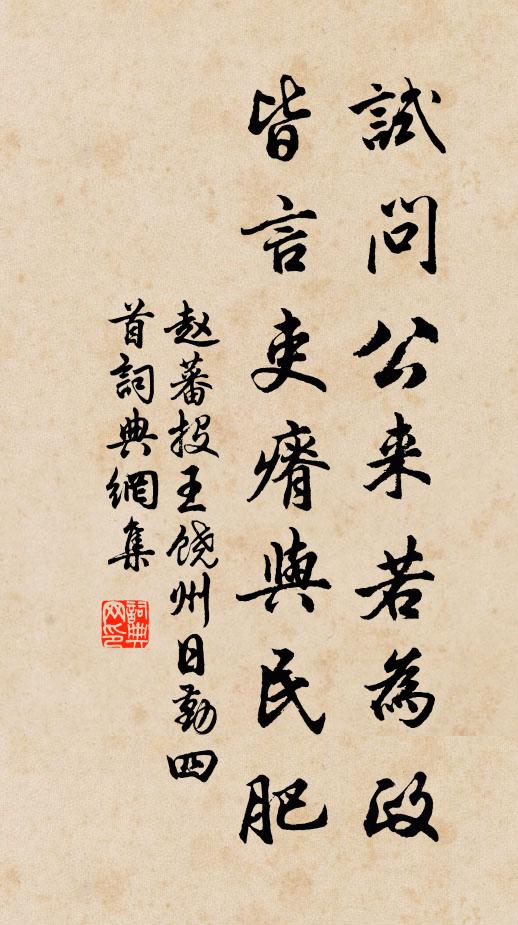 試問公来若為政
皆言吏瘠與民肥
赵蕃投王饶州日勤四
首詞典網集
詞典网印